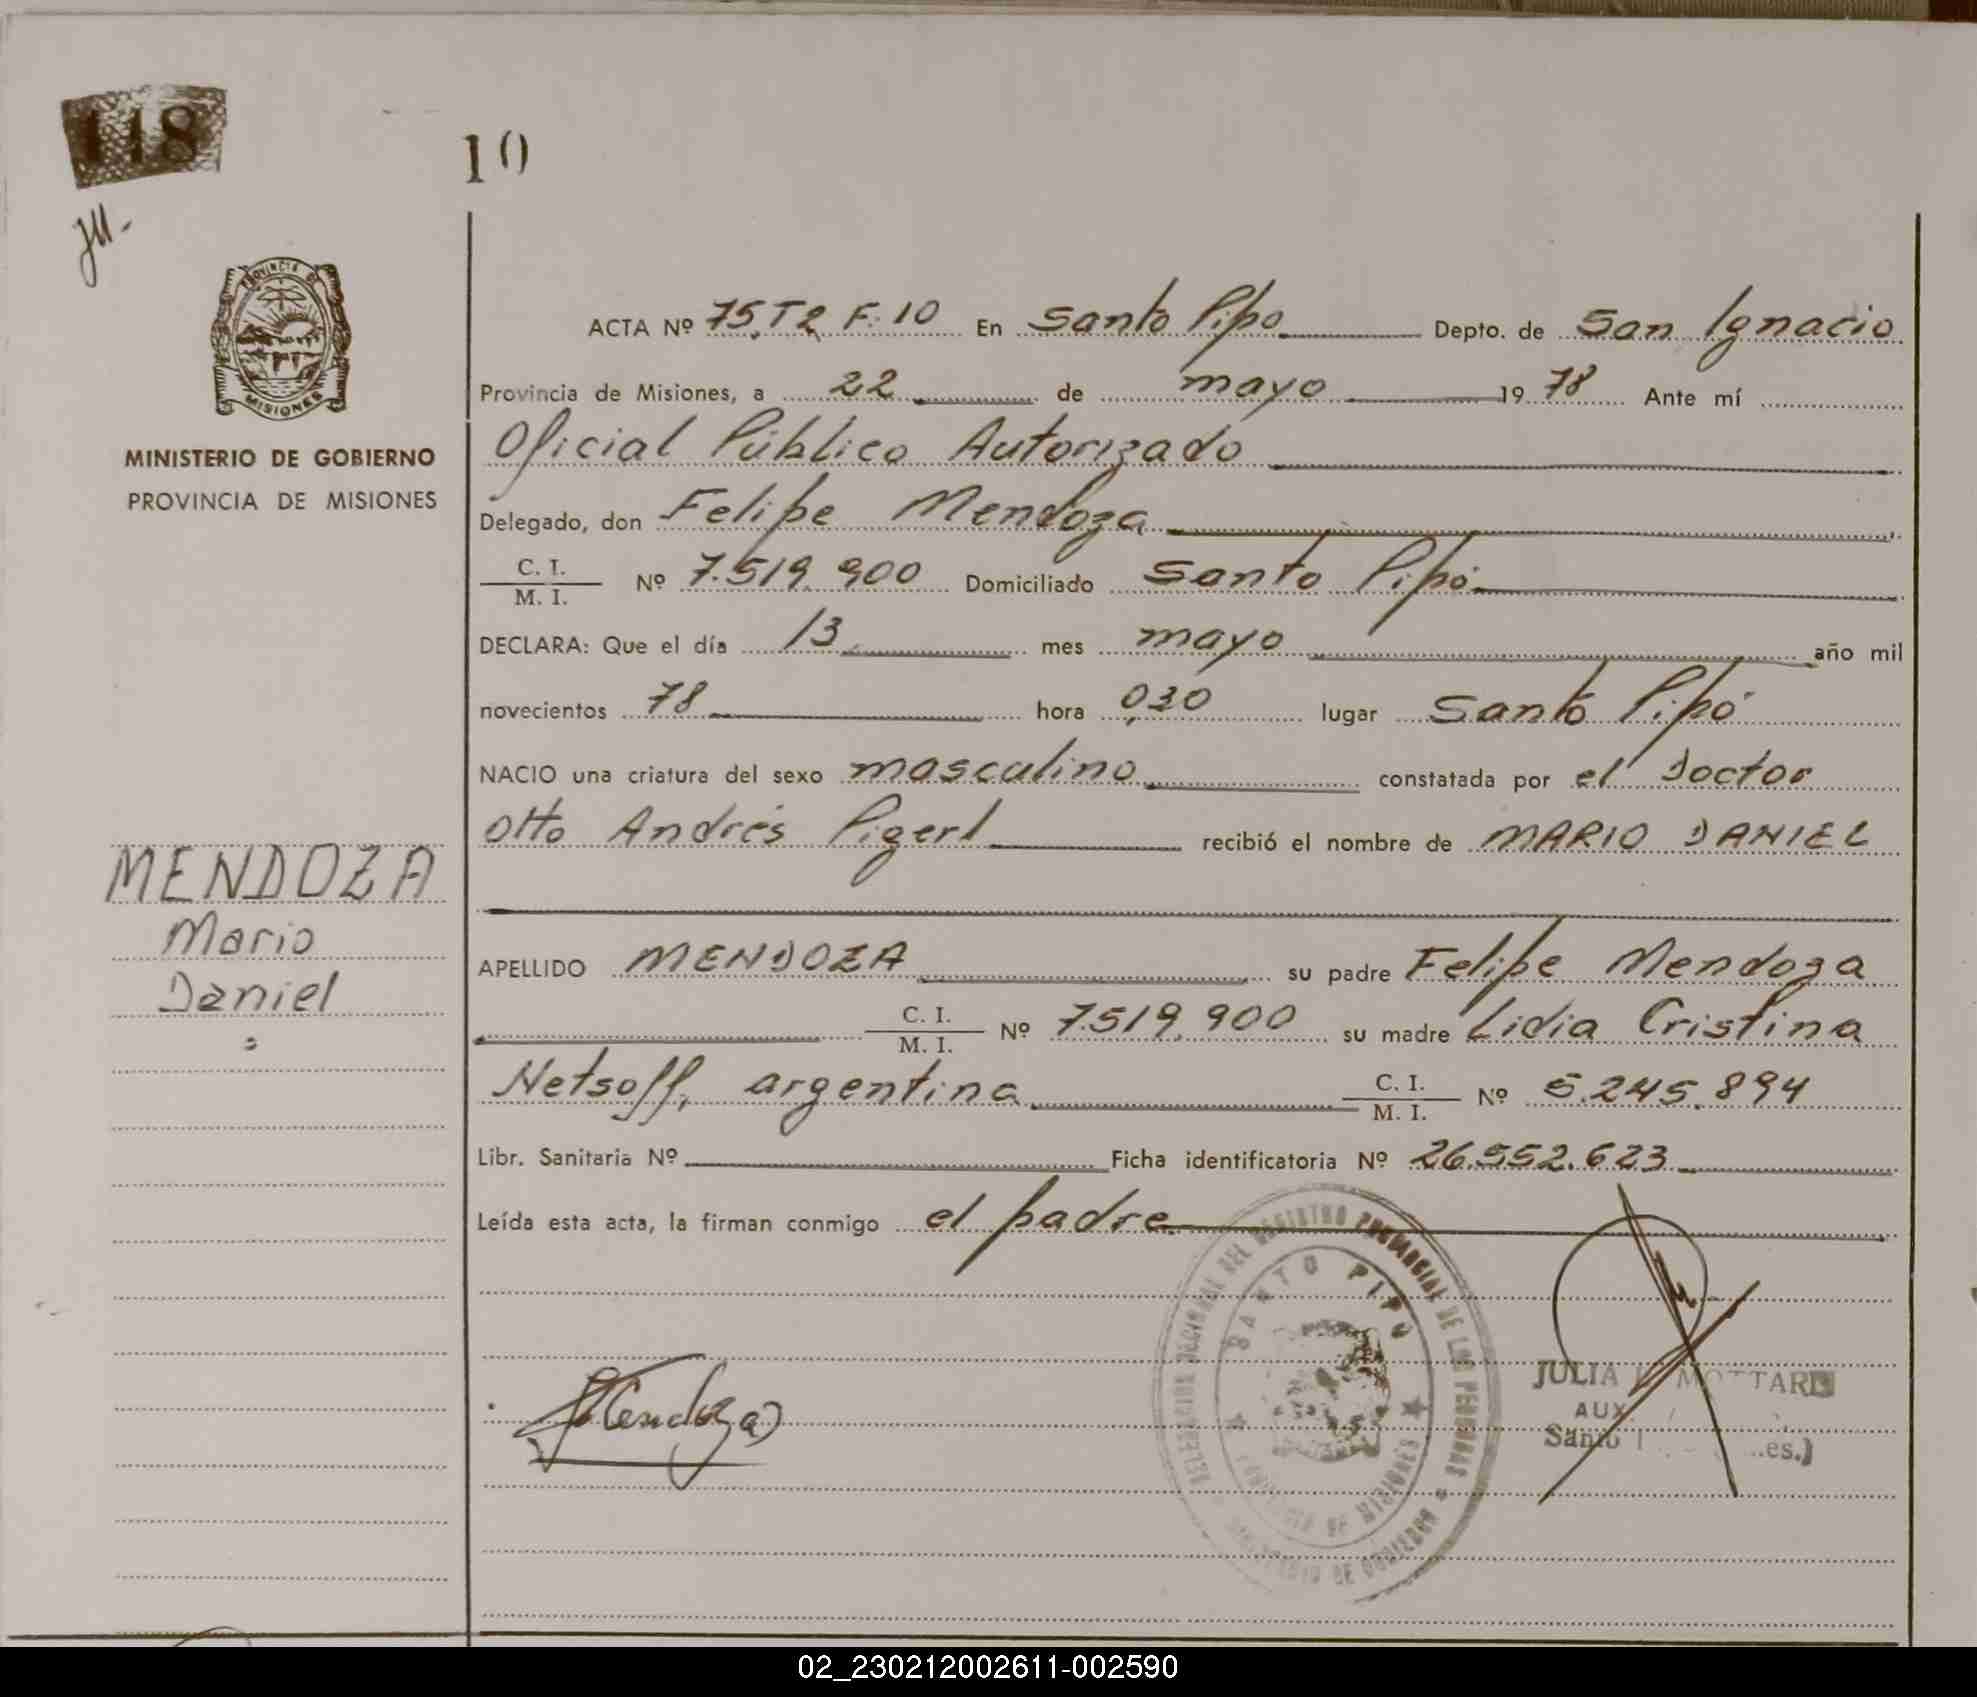 118
10
PROVINCIA DE
MISIONES
MINISTERIO DE GOBIERNO
PROVINCIA DE MISIONES
MENDOZA
Mario
Daniel
ACTA Nº 75, T2, F: 10 En Santo Pipo Depto. de San Ignacio
Provincia de Misiones, a 22 de mayo 19 78 Ante mí
Oficial Público Autorizado
Delegado, don Felipe Mendoza
C. I. / M. I. Nº 7.519.900 Domiciliado Santo Pipó
DECLARA: Que el día 13 mes mayo año mil
novecientos 78 hora 0,30 lugar Santo Pipó
NACIO una criatura del sexo masculino constatada por el Doctor
Otto Andrés Pigerl recibió el nombre de MARIO DANIEL
APELLIDO MENDOZA su padre Felipe Mendoza
C. I. / M. I. Nº 7.519.900 su madre Lidia Cristina
Netsoff, argentina C. I. / M. I. Nº 5.245.894
Libr. Sanitaria Nº Ficha identificatoria Nº 26.552.623
Leída esta acta, la firman conmigo el padre.
DELEGACION SECCIONAL DEL REGISTRO PROVINCIAL DE LAS PERSONAS
SANTO PIPÓ
PROVINCIA DE MISIONES
MINISTERIO DE GOBIERNO
Mendoza
JULIA
AUX
Santo
02_230212002611-002590